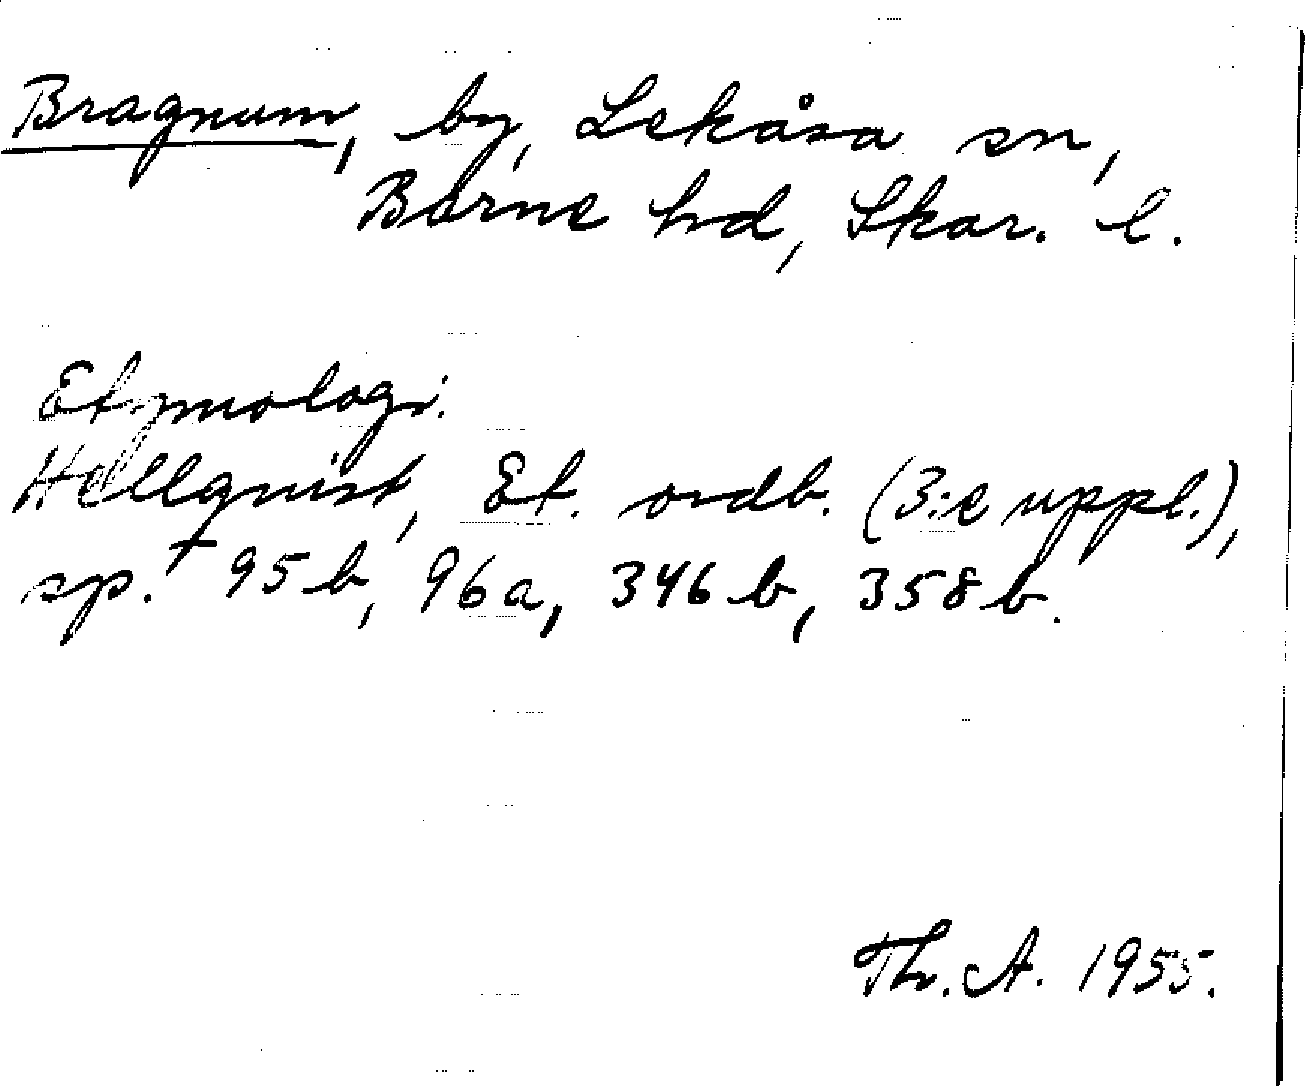 Bragnum, by, Lekåsa sn,
Barne hd, Skar. l.
Etymologi.
Hellquist, Et. ordb. (3:e uppl.),
sp. 95 b, 96 a, 346 b, 358 b.
Th. A. 1955.